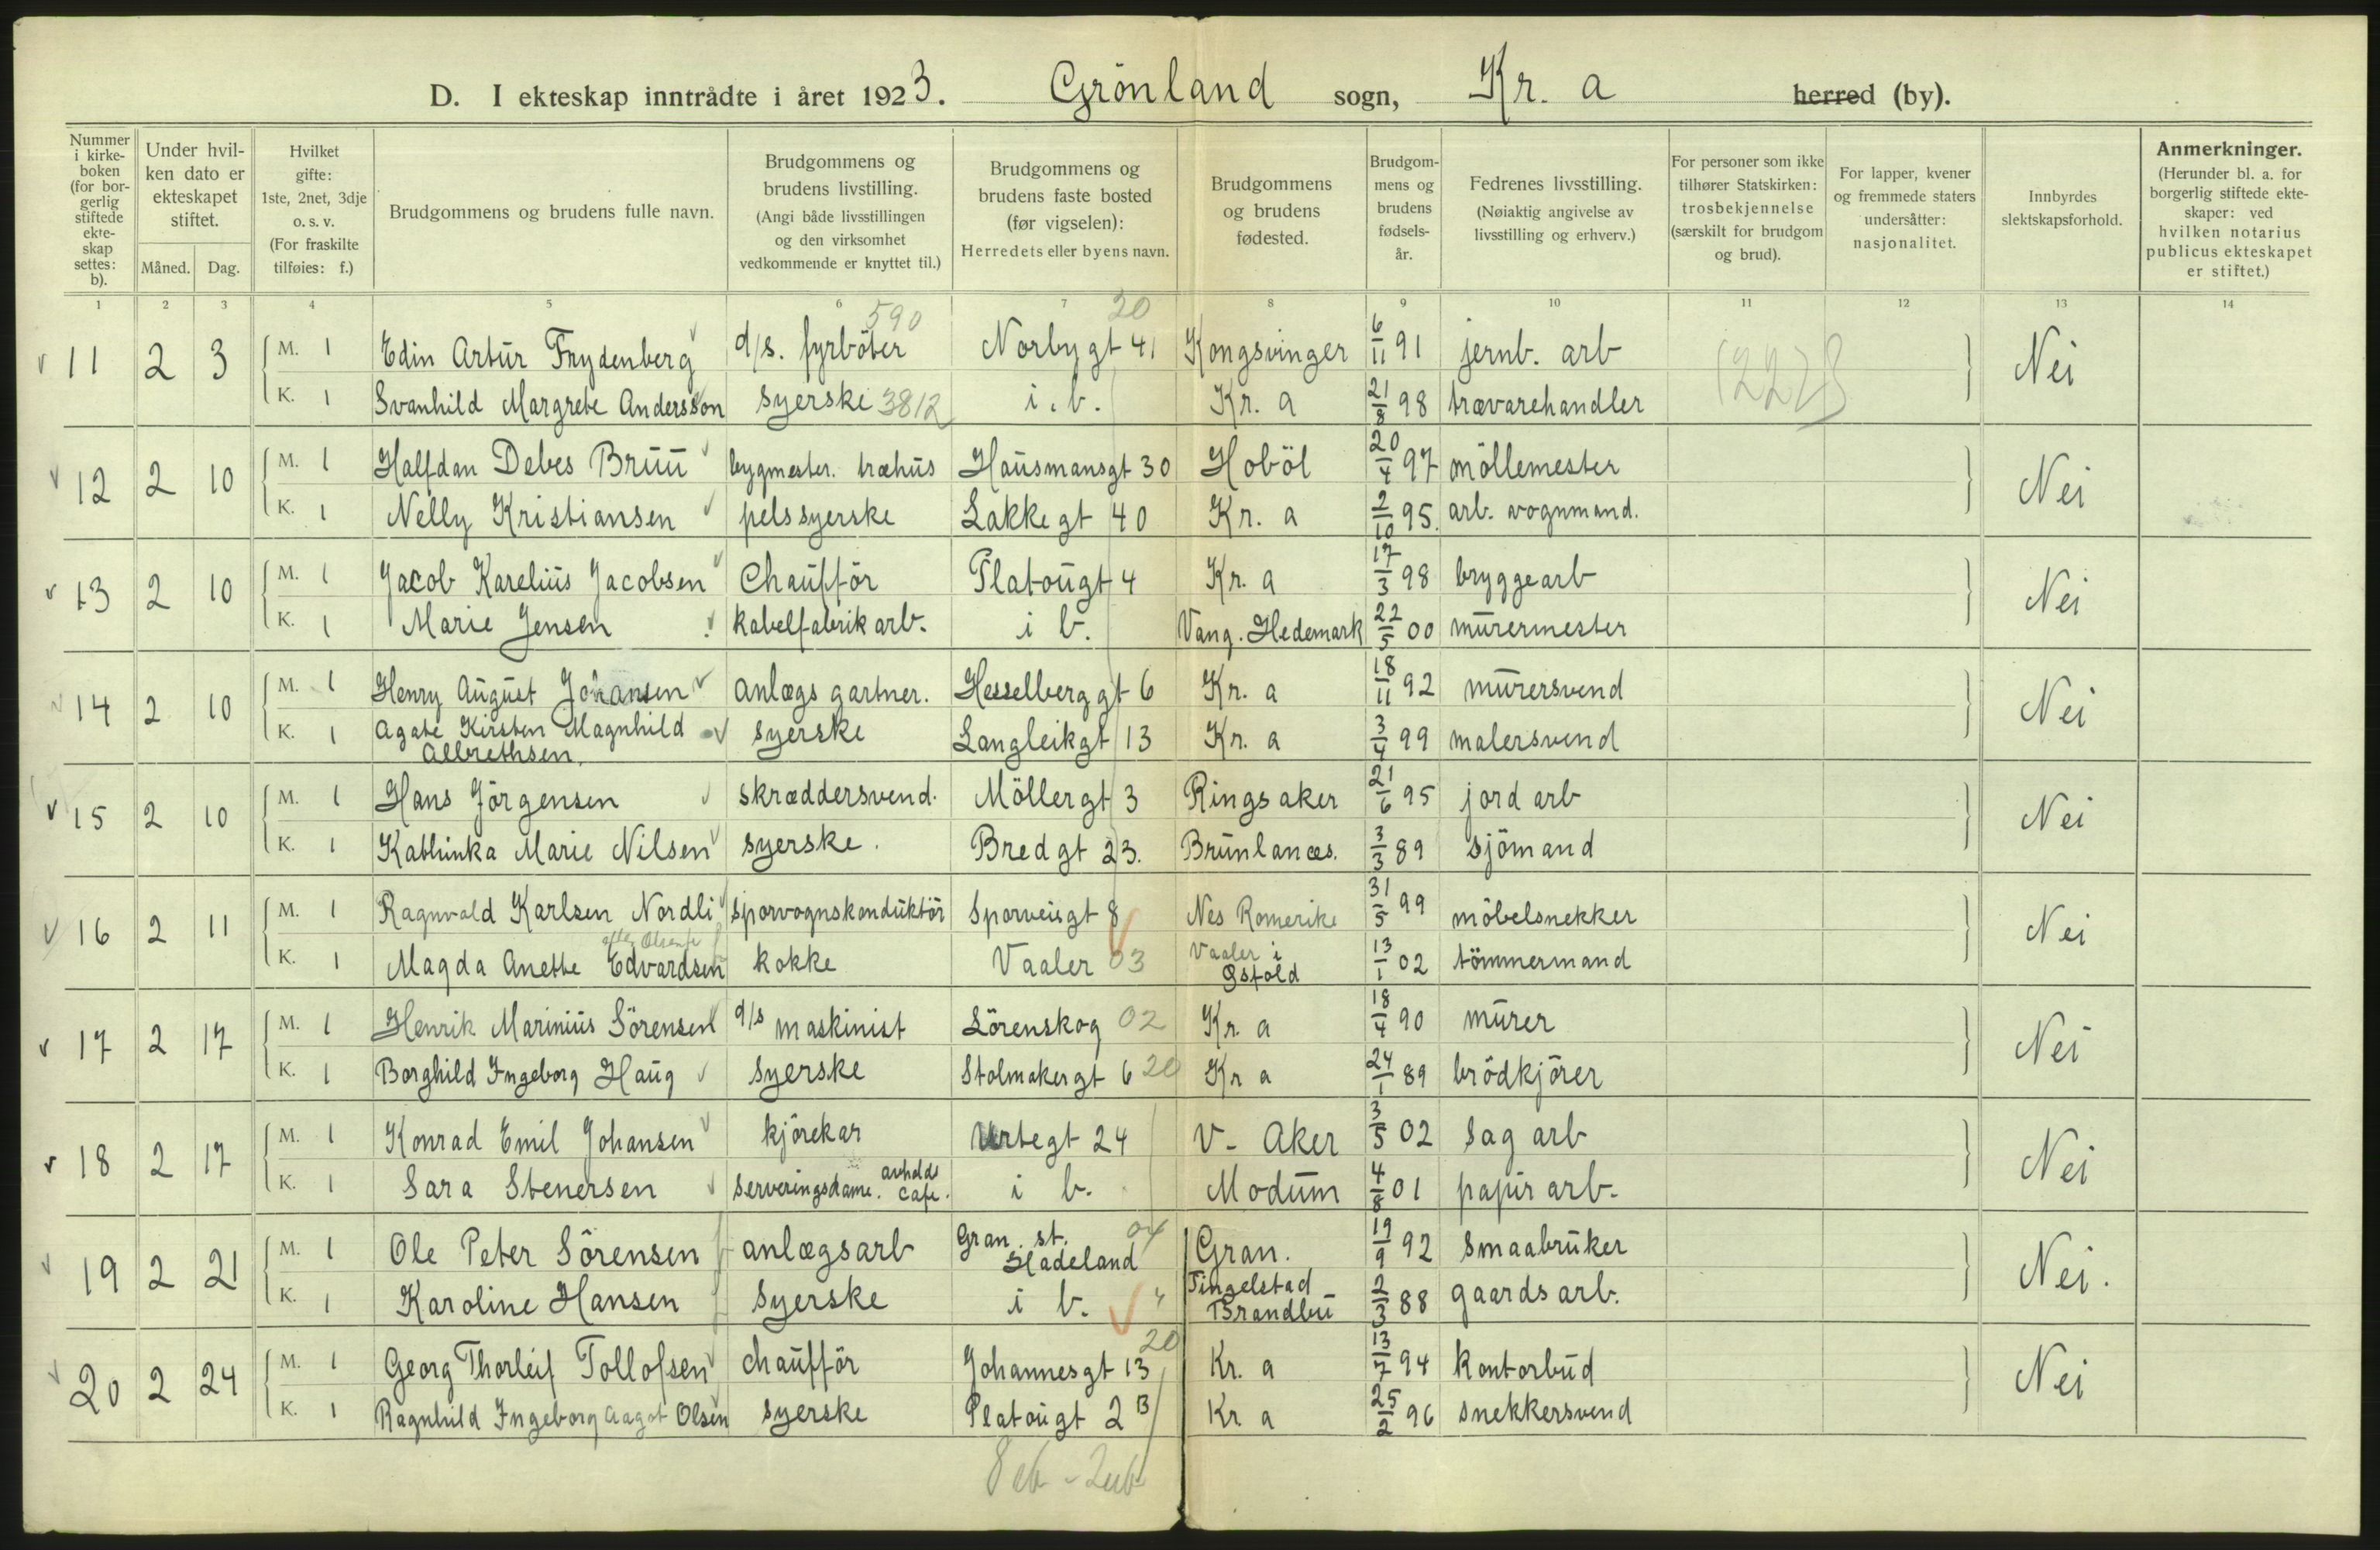 D. I ekteskap inntrådte i året 1923. Grönland sogn, Kr. a herred (by).
Nummer i kirkeboken (for borgerlig stiftede ekteskap settes: b).
Under hvilken dato er ekteskapet stiftet.
Måned. Dag.
Hvilket gifte: 1ste, 2net, 3dje o. s. v. (For fraskilte tilføies: f.)
Brudgommens og brudens fulle navn.
Brudgommens og brudens livstilling. (Angi både livsstillingen og den virksomhet vedkommende er knyttet til.)
Brudgommens og brudens faste bosted (før vigselen): Herredets eller byens navn.
Brudgommens og brudens fødested.
Brudgommens og brudens fødselsår.
Fedrenes livsstilling. (Nøiaktig angivelse av livsstilling og erhverv.)
For personer som ikke tilhører Statskirken: trosbekjennelse (særskilt for brudgom og brud).
For lapper, kvener og fremmede staters undersåtter: nasjonalitet.
Innbyrdes slektskapsforhold.
Anmerkninger. (Herunder bl. a. for borgerlig stiftede ekteskaper: ved hvilken notarius publicus ekteskapet er stiftet.)
1 2 3 4 5 6 7 8 9 10 11 12 13 14
590 20
11 2 3 M. 1 Edin Artur Frydenberg d/s. fyrböter Norbygt 41 Kongsvinger 6/11 91 jernb. arb Nei
K. 1 Svanhild Margrete Andersson syerske 3812 i. b. Kr. a 21/8 98 trævarehandler
12 2 10 M. 1 Halfdan Debes Bruu bygmester. træhus Hausmansgt 30 Höböl 20/4 97 möllemester Nei
K. 1 Nelly Kristiansen pelssyerske Lakkegt 40 Kr. a 2/10 95. arb. vognmand.
13 2 10 M. 1 Jacob Karelius Jacobsen Chaufför Platougt 4 Kr. a 17/3 98 bryggearb Nei
K. 1 Marie Jensen kabelfabrik arb. i b. Vang. Hedemark 22/5 00 murermester
14 2 10 M. 1 Henry August Johansen anlægs gartner. Hesselberggt 6 Kr. a 18/11 92 murersvend Nei
K. 1 Agate Kirsten Magnhild Albrethsen. syerske Langleikgt 13 Kr. a 3/4 99 malersvend
15 2 10 M. 1 Hans Jörgensen skræddersvend. Möllergt 3 Ringsaker 21/6 95 jord arb Nei
K. 1 Kathinka Marie Nilsen syerske. Bredgt 23. Brunlanæs. 3/3 89 sjömand
16 2 11 M. 1 Ragnvald Karlsen Nordli sporvognskonduktör Sporveisgt 8 Nes Romerike 31/5 99 möbelsnekker Nei
K. 1 Magda Anette Edvardsen kokke Vaaler 03 Vaaler i Østfold 13/1 02 tömmermand
17 2 17 M. 1 Henrik Marinius Sörensen d/s maskinist Lörenskog 02 Kr. a 18/4 90 murer Nei
K. 1 Borghild Ingeborg Haug syerske Stolmakergt 6 20 Kr a 24/1 89 brödkjörer
18 2 17 M. 1 Konrad Emil Johansen kjörekar Urtegt 24 V. Aker 3/5 02 sag arb Nei
K. 1 Sara Stenersen serveringsdame. avholds cafe. i b. Modum 4/8 01 papir arb.
19 2 21 M. 1 Ole Peter Sörensen anlægsarb Gran st. Hadeland 04 Gran. 19/9 92 smaabruker Nei.
K. 1 Karoline Hansen syerske i b. " Tingelstad Brandbu 2/3 88 gaardsarb.
20 2 24 M. 1 Georg Thorleif Tollofsen chaufför Johannesgt 13 20 Kr. a 13/7 94 kontorbud Nei
K. 1 Ragnhild Ingeborg Aagot Olsen syerske Platougt 2 B Kr a 25/2 96 snekkersvend